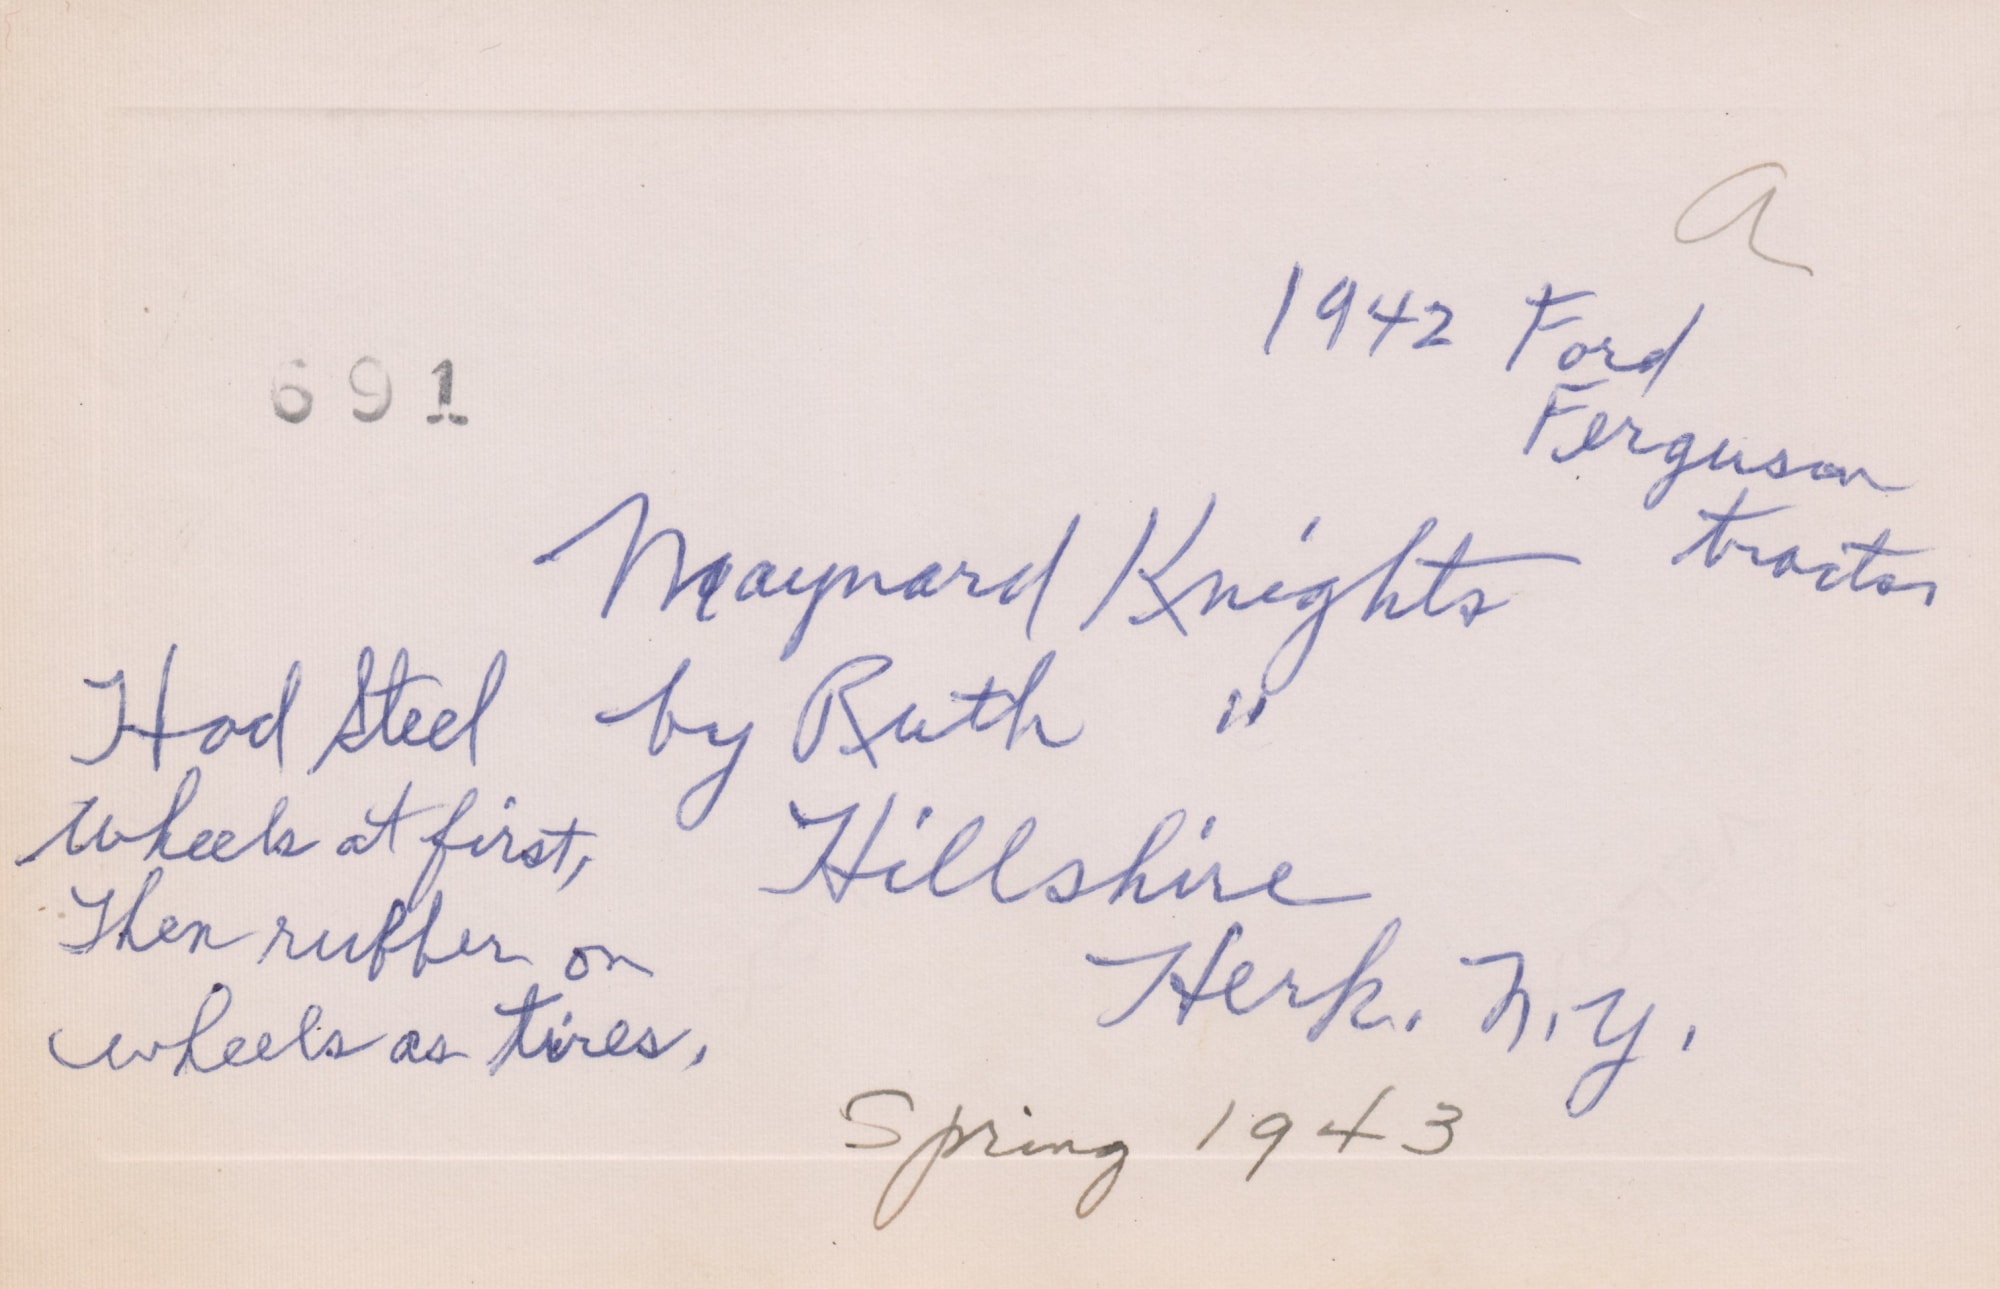 a
1942 Ford
Ferguson
tractor
691
Maynard Knights
by Ruth "
Hillshire
Herk. N.Y.
Had Steel
wheels at first,
Then rubber on
wheels as tires.
Spring 1943